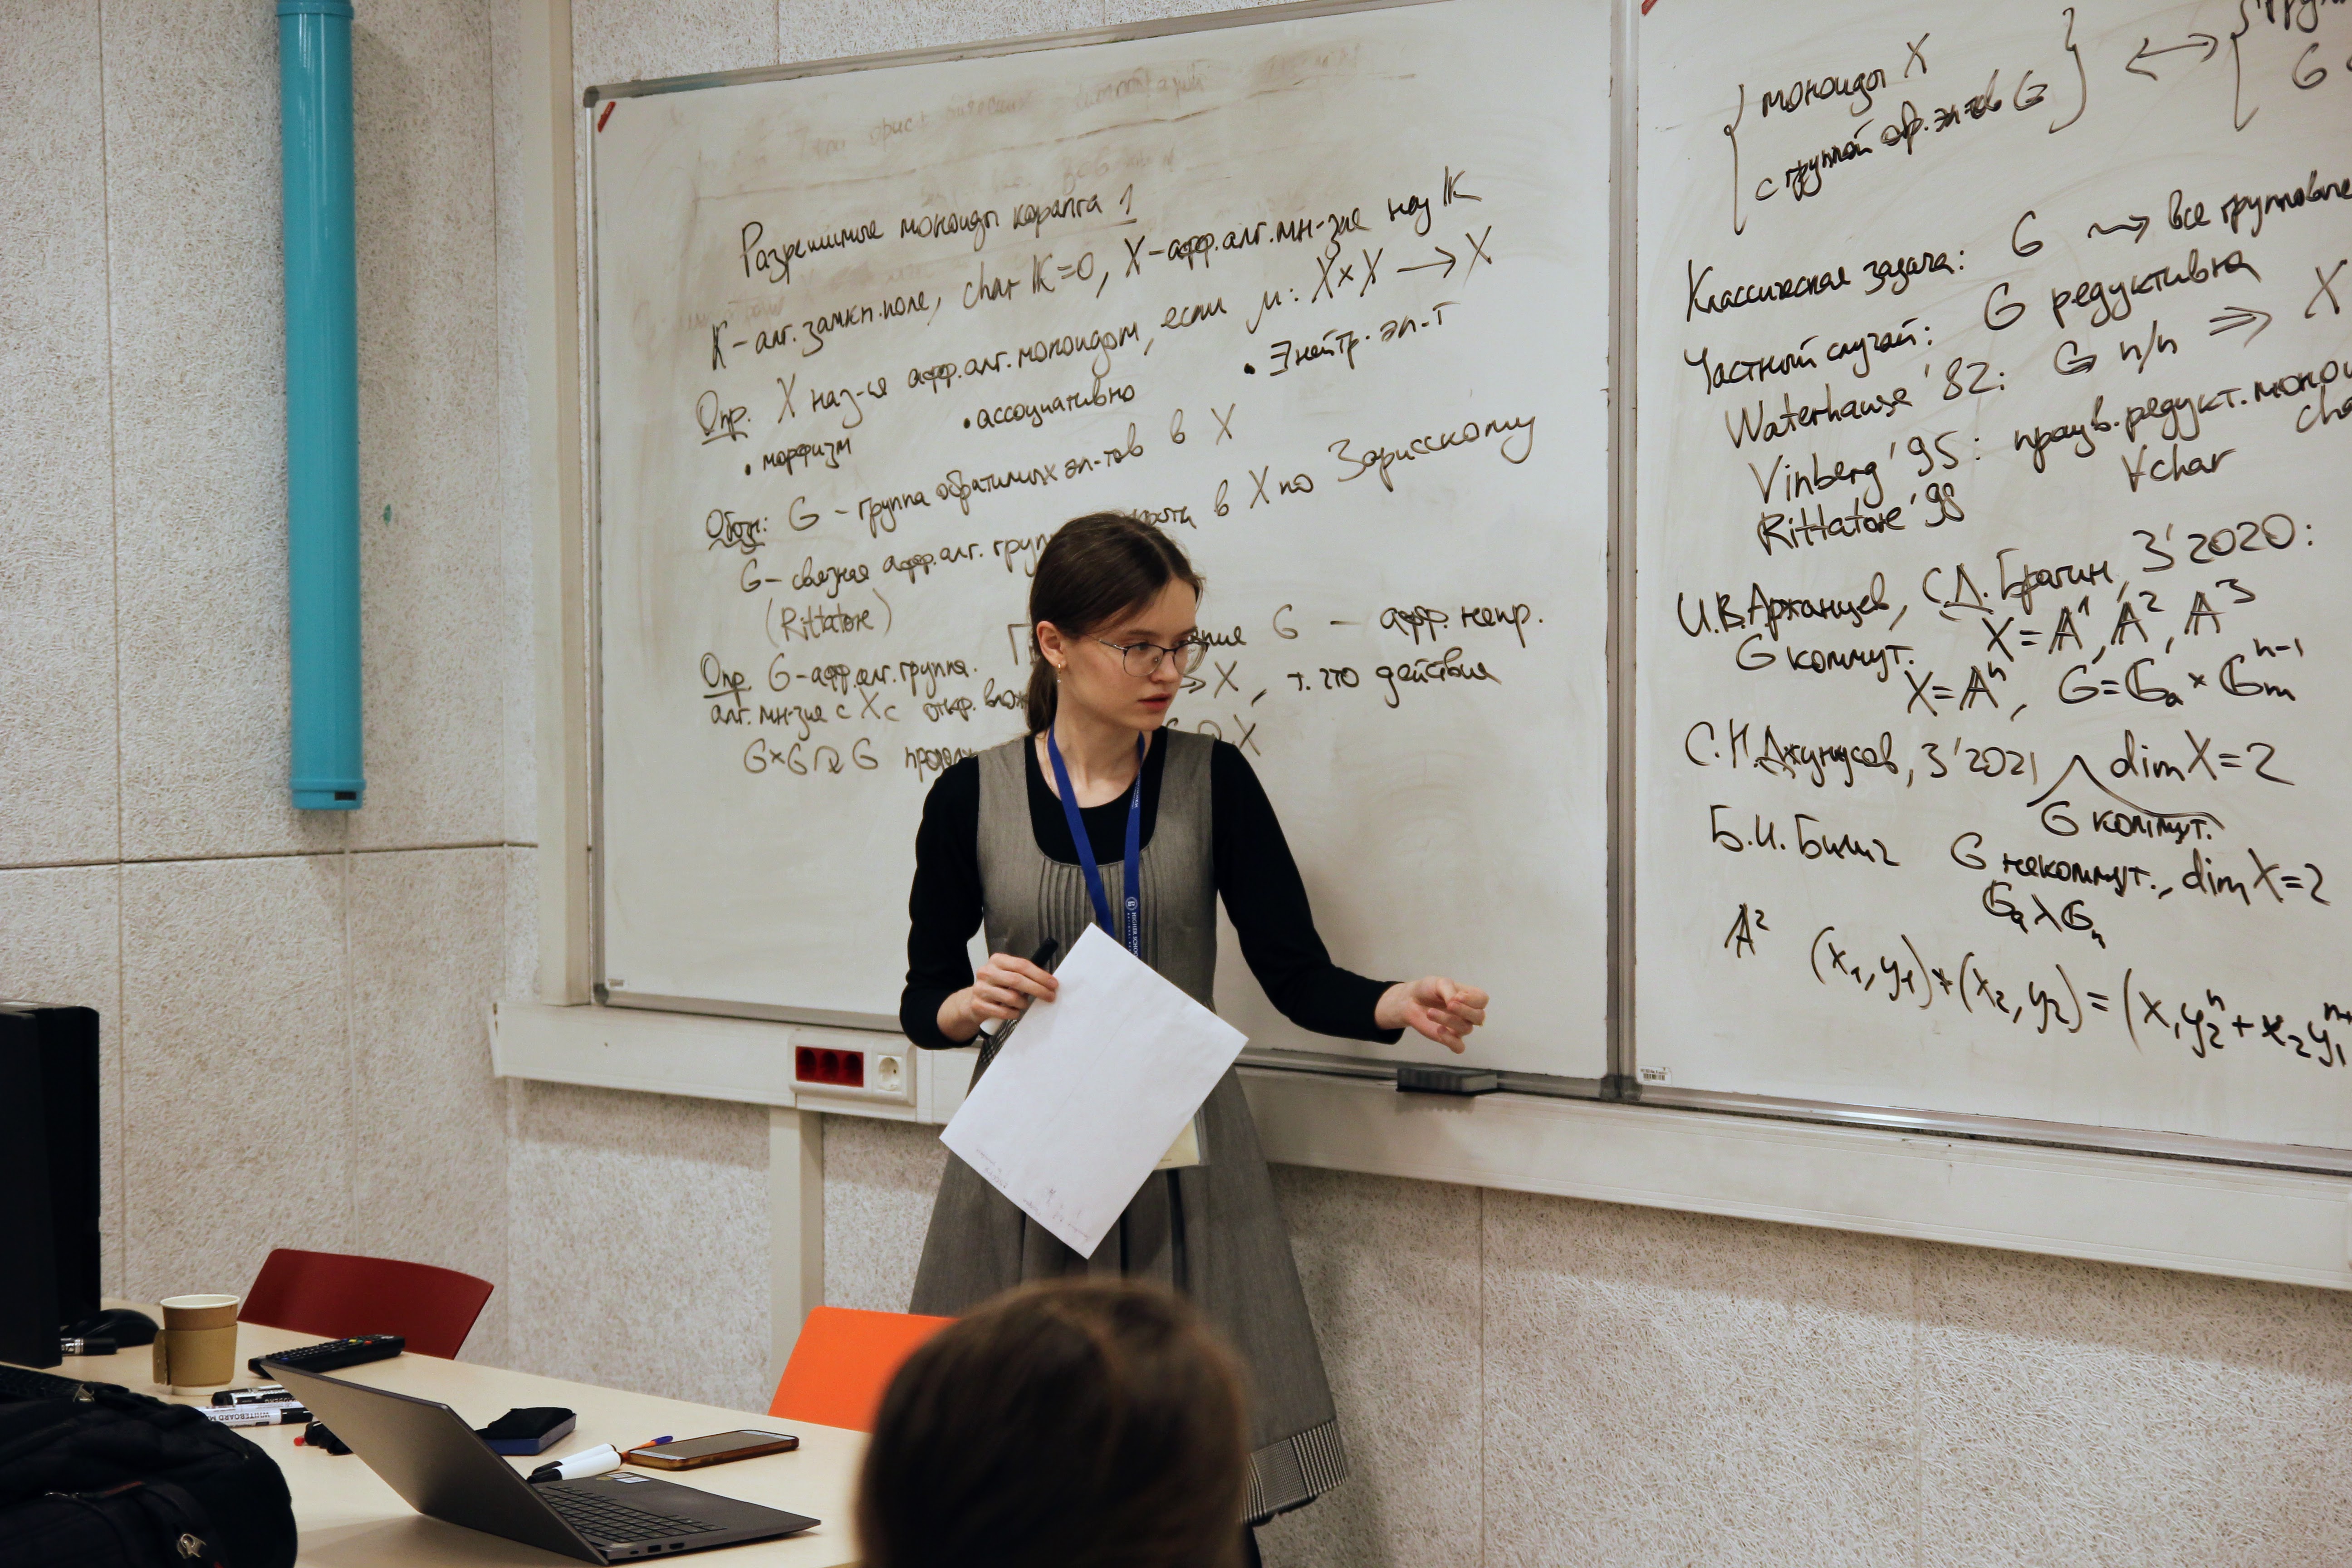 Разрешимые моноиды коранга 1
K – алг. замкн. поле, char K=0, X – афф. алг. мн-зие над K
Опр. X наз-ся афф. алг. моноидом, если μ: X×X → X
• морфизм • ассоциативно • ∃ нейтр. эл-т
Обозн: G – группа обратимых эл-тов в X
G – связная афф. алг. груп в X по Зарисскому
(Rittatore)
Опр. G – афф. алг. группа. G – афф. непр.
алг. мн-зие с X с откр. влож → X, т. что действия
G×G ↷ G продолж X
{ моноиды X
с группой обр. эл-тов G } ↔ {
G
Классическая задача: G ⇝ все групповые
Частный случай: G редуктивна
Waterhouse '82: G n/n ⇒ X
Vinberg '95: произв. редукт. моно
Rittatore '98 ∀char cha
И.В. Аржанцев, С.Д. Брагин, З' 2020:
G коммут. X = A¹, A², A³
X = Aⁿ, G = Gₐ × Gₘⁿ⁻¹
С.Н. Джунусов, З' 2021 dim X = 2
G коммут.
Б.И. Билич G некоммут., dim X = 2
Gₐ ⋋ Gₘ
A² (x₁, y₁) * (x₂, y₂) = (x₁y₂ⁿ + x₂y₁
WHITEBOARD M